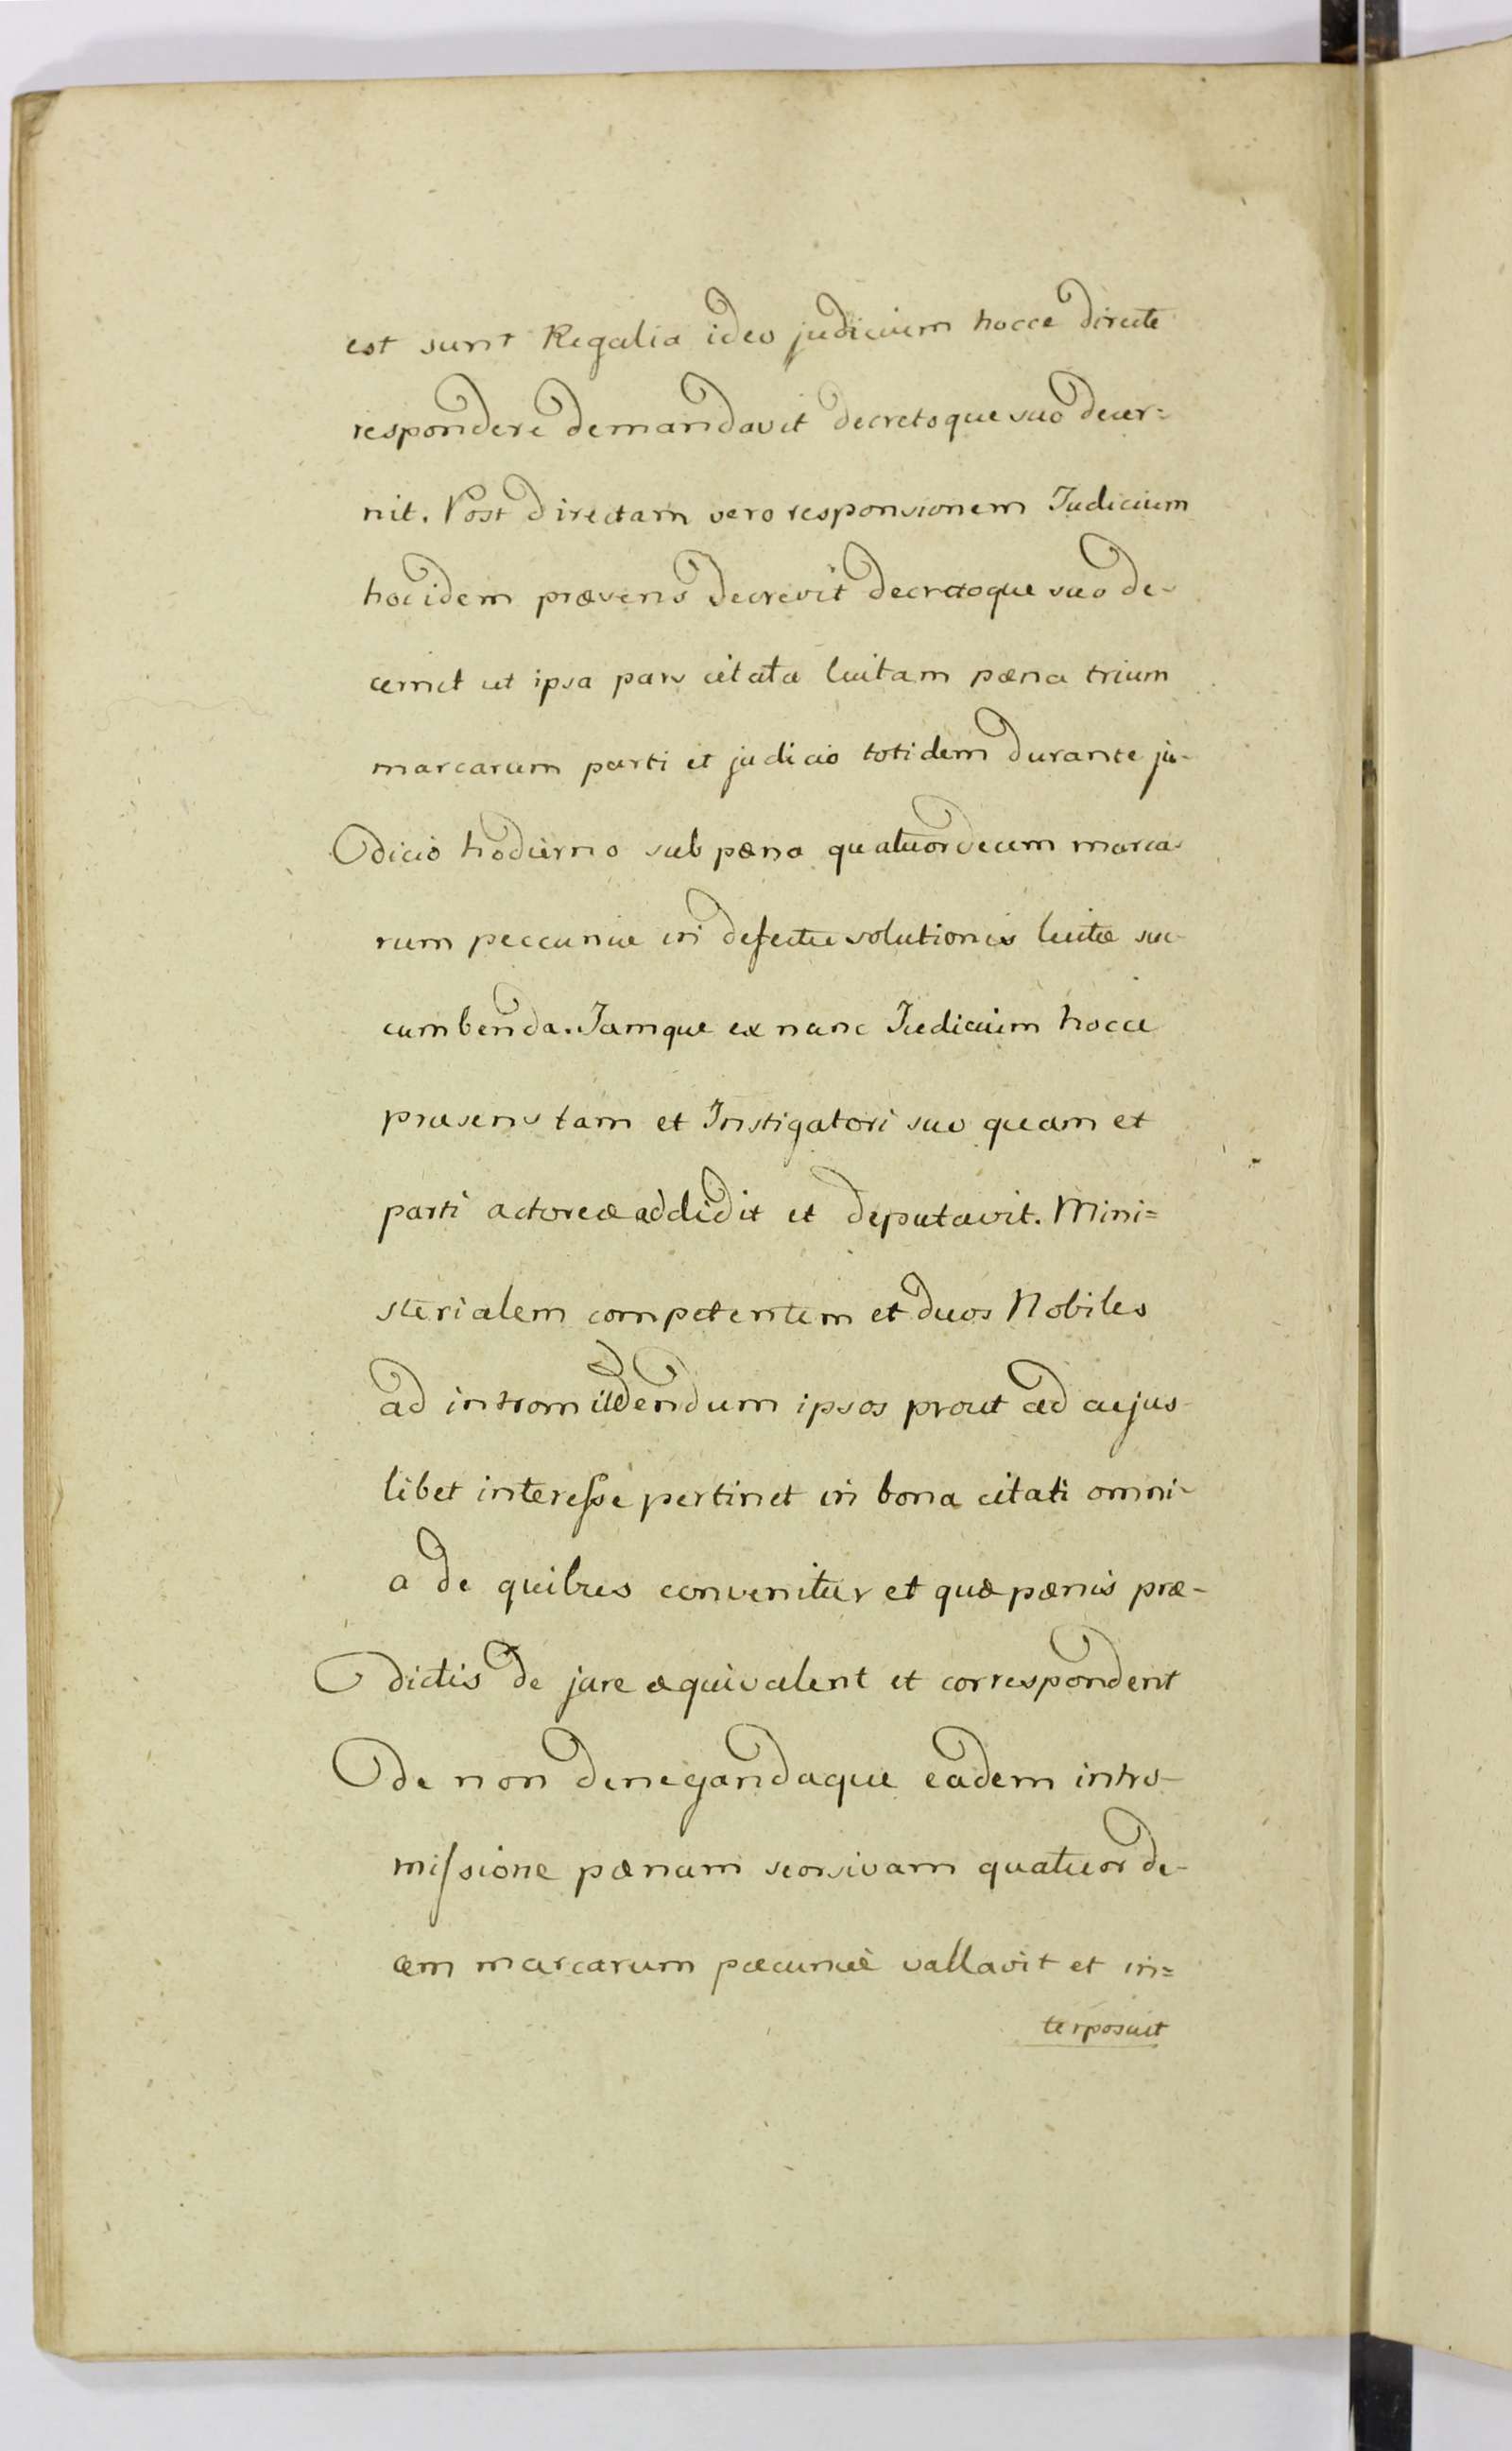 est sunt Regalia ideo judicium hocce directe
respondere demandavit decretoque suo decer=
nit. Post directam vero responsionem Judicium
hoc idem præsens decrevit decretoque suo de-
cernit ut ipsa pars citata luitam pæna trium
marcarum parti et judicio totidem durante ju-
dicio hodierno sub pæna quatuordecim marca-
rum peccuniæ in defectu solutionis luitæ suc-
cumbenda. Jamque ex nunc Judicium hocce
præsens tam et Instigatori suo quam et
parti actoreæ addidit et deputavit. Mini=
sterialem competentem et duos Nobiles
ad intromittendum ipsos prout ad cujus-
libet interesse pertinet in bona citati omni-
a de quibus convenitur et quæ pænis præ-
dictis de jure æquivalent et correspondent
de non denegandaque eadem intro-
missione pænam seorsivam quatuor de-
cem marcarum pæcuniæ vallavit et in=
terposuit